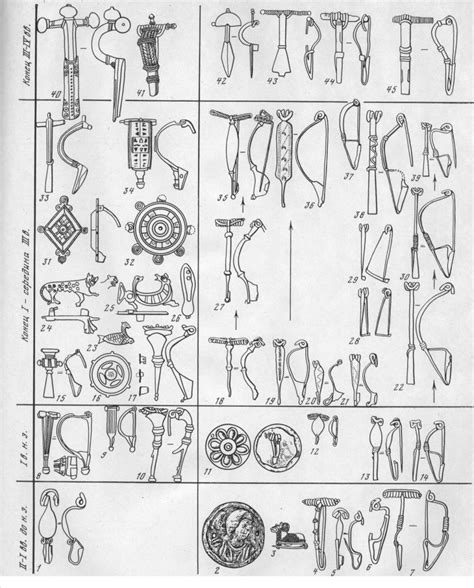 Конец III-IV вв.
40 41 42 43 44 45
Конец I - середина III в.
33 34 35 36 37 38 39
31 32 27 28 30
24 25 26
23
15 16 17 18 19 20 21 22
I в. н. э.
8 9 10 11 12 13 14
II-I вв. до н. э.
1 2 3 4 5 6 7